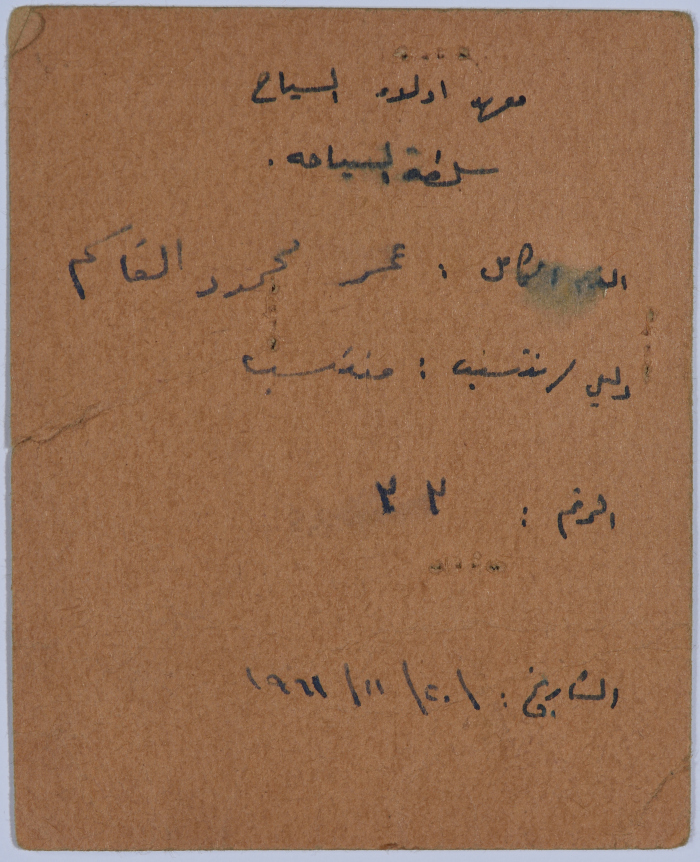 معهد ادلاء السياح
سلطة السياحه .
الاسم الكامل : عمر محمود القاسم
دليل / منتسب : منتسب
الرقم : ٣٣
التاريخ : ٢٠ / ١١ / ١٩٦٧